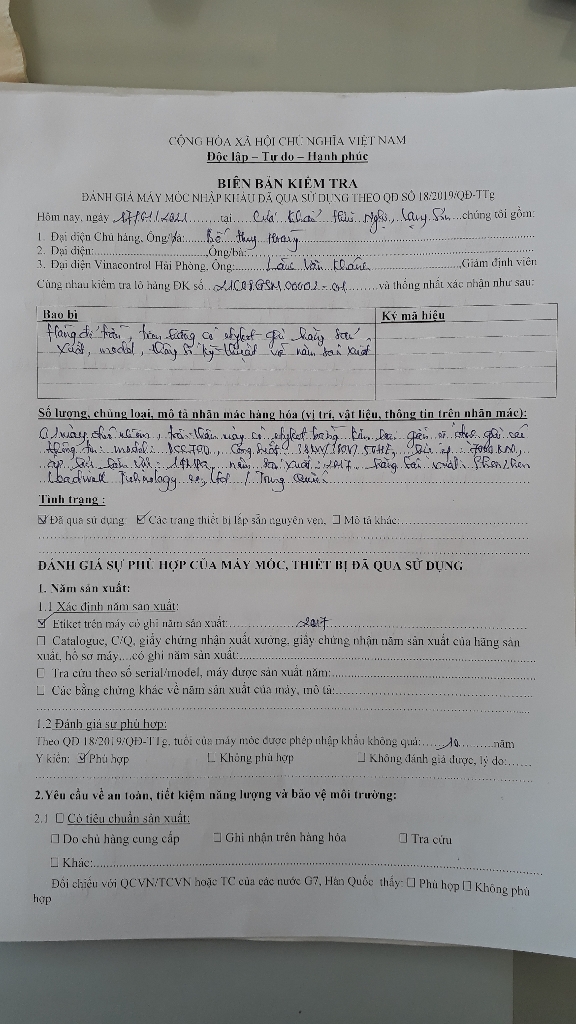 CỘNG HÒA XÃ HỘI CHỦ NGHĨA VIỆT NAM
Độc lập – Tự do – Hạnh phúc
BIÊN BẢN KIỂM TRA
ĐÁNH GIÁ MÁY MÓC NHẬP KHẨU ĐÃ QUA SỬ DỤNG THEO QĐ SỐ 18/2019/QĐ-TTg
Hôm nay, ngày 27/01/2021 tại Cửa Khẩu Hữu Nghị, Lạng Sơn chúng tôi gồm:
1. Đại diện Chủ hàng, Ông/bà: Thuỳ Trang
2. Đại diện: Ông/bà:
3. Đại diện Vinacontrol Hải Phòng, Ông: Văn Giám định viên
Cùng nhau kiểm tra lô hàng ĐK số 21C08GSM00002-01 và thống nhất xác nhận như sau:
Bao bì Ký mã hiệu
Hàng để trần, trên có etyket ghi hãng sản
xuất, model, thông số kỹ thuật và năm sản xuất
Số lượng, chủng loại, mô tả nhãn mác hàng hóa (vị trí, vật liệu, thông tin trên nhãn mác):
01 máy, trên thân máy có etyket bằng kim loại gắn ghi các
thông tin: model:, công suất:
năm sản xuất: 2017 hãng sản xuất: Shenzhen
Leadwell Technology co, ltd / Trung Quốc
Tình trạng :
☑ Đã qua sử dụng ☑ Các trang thiết bị lắp sẵn nguyên vẹn, ☐ Mô tả khác:
ĐÁNH GIÁ SỰ PHÙ HỢP CỦA MÁY MÓC, THIẾT BỊ ĐÃ QUA SỬ DỤNG
1. Năm sản xuất:
1.1 Xác định năm sản xuất:
☑ Etiket trên máy có ghi năm sản xuất: 2017
☐ Catalogue, C/Q, giấy chứng nhận xuất xưởng, giấy chứng nhận năm sản xuất của hãng sản
xuất, hồ sơ máy....có ghi năm sản xuất:
☐ Tra cứu theo số serial/model, máy được sản xuất năm:
☐ Các bằng chứng khác về năm sản xuất của máy, mô tả:
1.2 Đánh giá sự phù hợp:
Theo QĐ 18/2019/QĐ-TTg, tuổi của máy móc được phép nhập khẩu không quá: 10 năm
Ý kiến: ☑ Phù hợp ☐ Không phù hợp ☐ Không đánh giá được, lý do:
2.Yêu cầu về an toàn, tiết kiệm năng lượng và bảo vệ môi trường:
2.1 ☐ Có tiêu chuẩn sản xuất:
☐ Do chủ hàng cung cấp ☐ Ghi nhận trên hàng hóa ☐ Tra cứu
☐ Khác:
Đối chiếu với QCVN/TCVN hoặc TC của các nước G7, Hàn Quốc thấy: ☐ Phù hợp ☐ Không phù
hợp